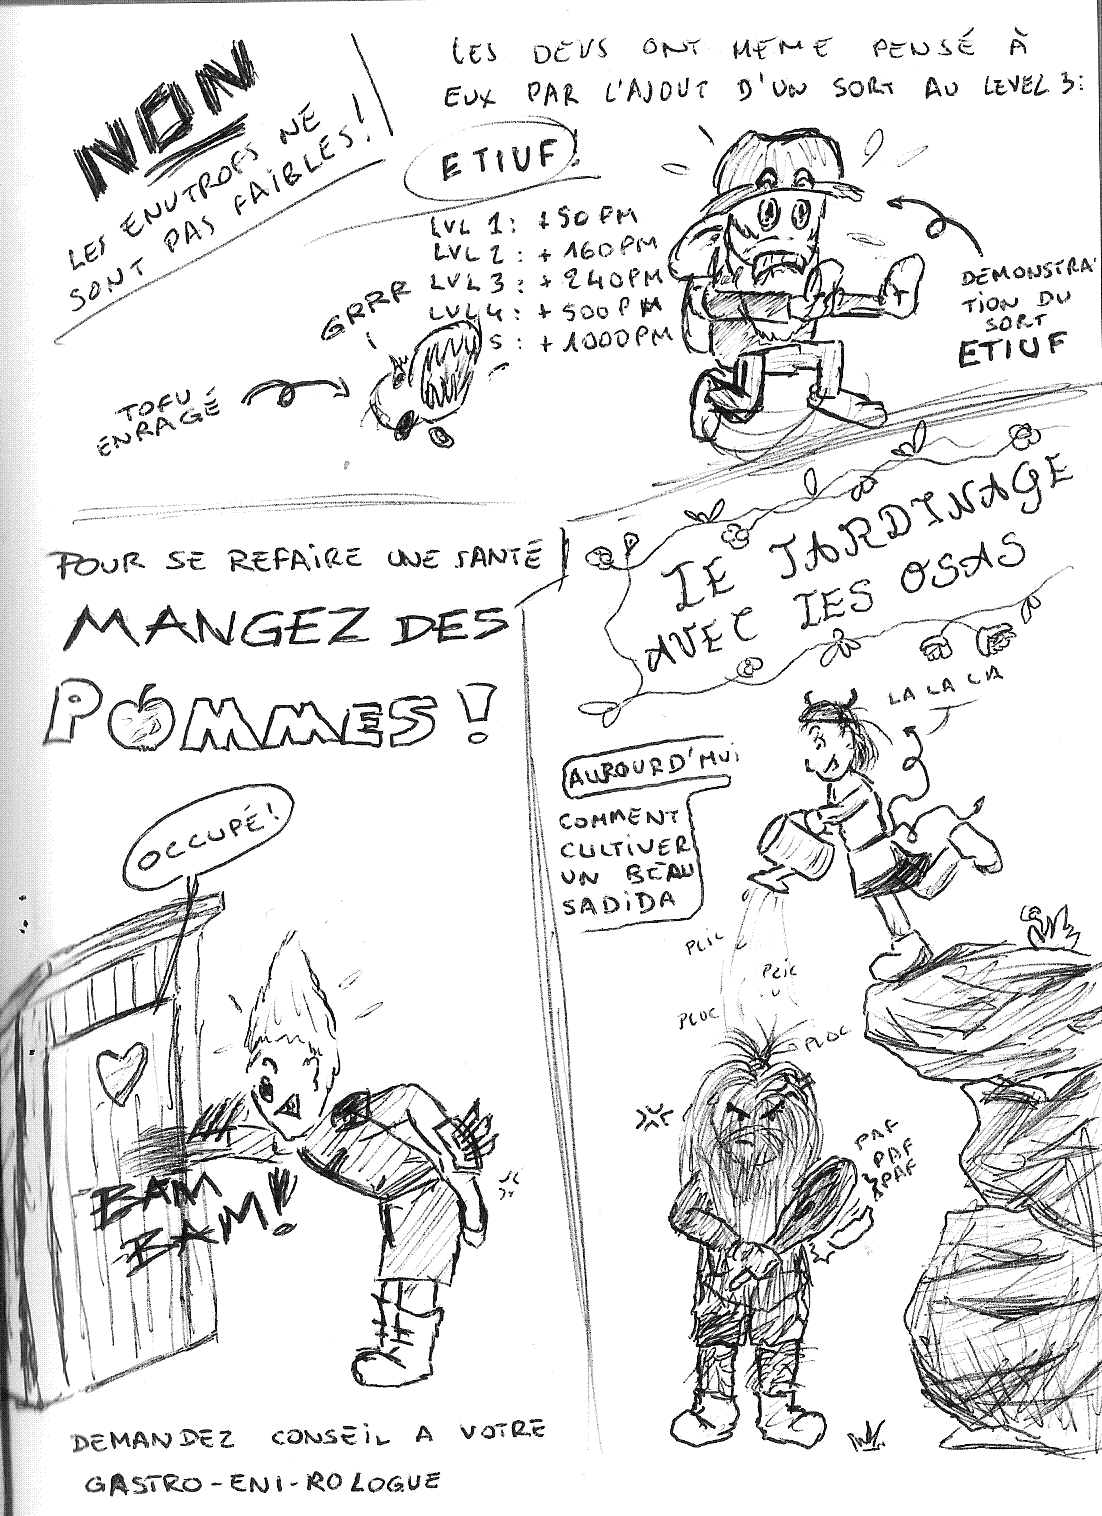 NON
LES ENUTROFS NE
SONT PAS FAIBLES!
LES DEVS ONT MEME PENSÉ À
EUX PAR L'AJOUT D'UN SORT AU LEVEL 3:
ETIUF!
LVL 1: +50PM
LVL 2: +160PM
LVL 3: +240PM
LVL4: +500PM
5: +1000PM
GRRR
TOFU
ENRAGÉ
DEMONSTRA-
TION DU
SORT
ETIUF
POUR SE REFAIRE UNE SANTÉ
MANGEZ DES
POMMES!
OCCUPÉ!
BAM
BAM!!
DEMANDEZ CONSEIL A VOTRE
GASTRO-ENI-ROLOGUE
LE JARDINAGE
AVEC LES OSAS
LA LA LA
AUJOURD'HUI
COMMENT
CULTIVER
UN BEAU
SADIDA
PLIC
PLIC
PLOC
PLOC
PAF
PAF
PAF